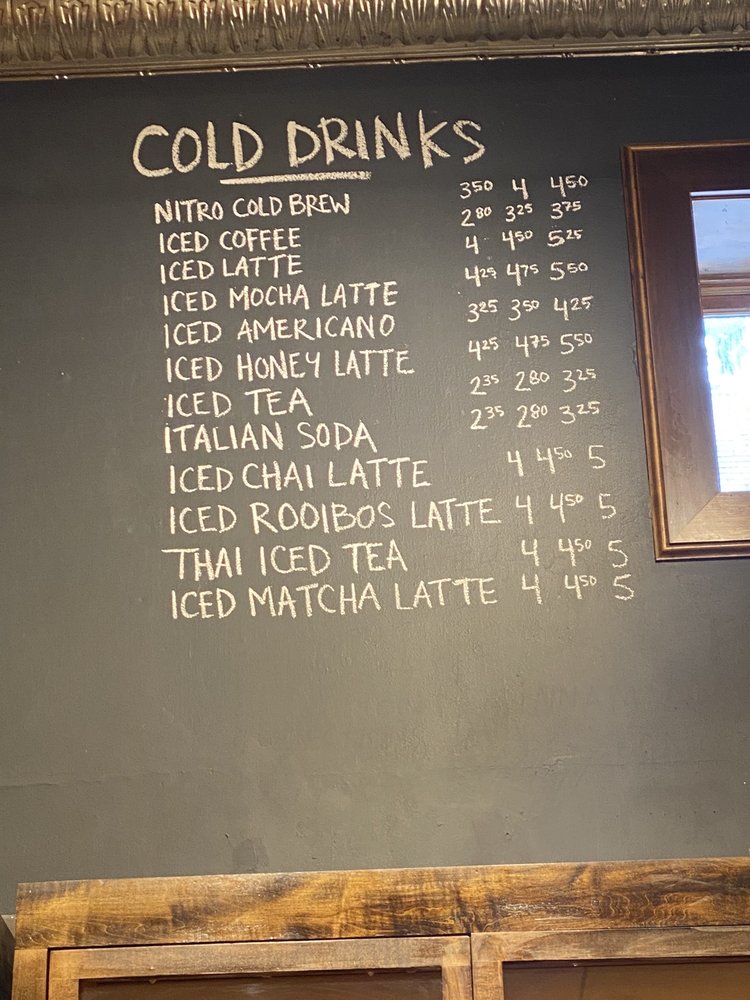 COLD DRINKS
NITRO COLD BREW 350 4 450
ICED COFFEE 280 325 375
ICED LATTE 4 450 525
ICED MOCHA LATTE 425 475 550
ICED AMERICANO 325 350 425
ICED HONEY LATTE 425 475 550
ICED TEA 235 280 325
ITALIAN SODA 235 280 325
ICED CHAI LATTE 4 450 5
ICED ROOIBOS LATTE 4 450 5
THAI ICED TEA 4 450 5
ICED MATCHA LATTE 4 450 5